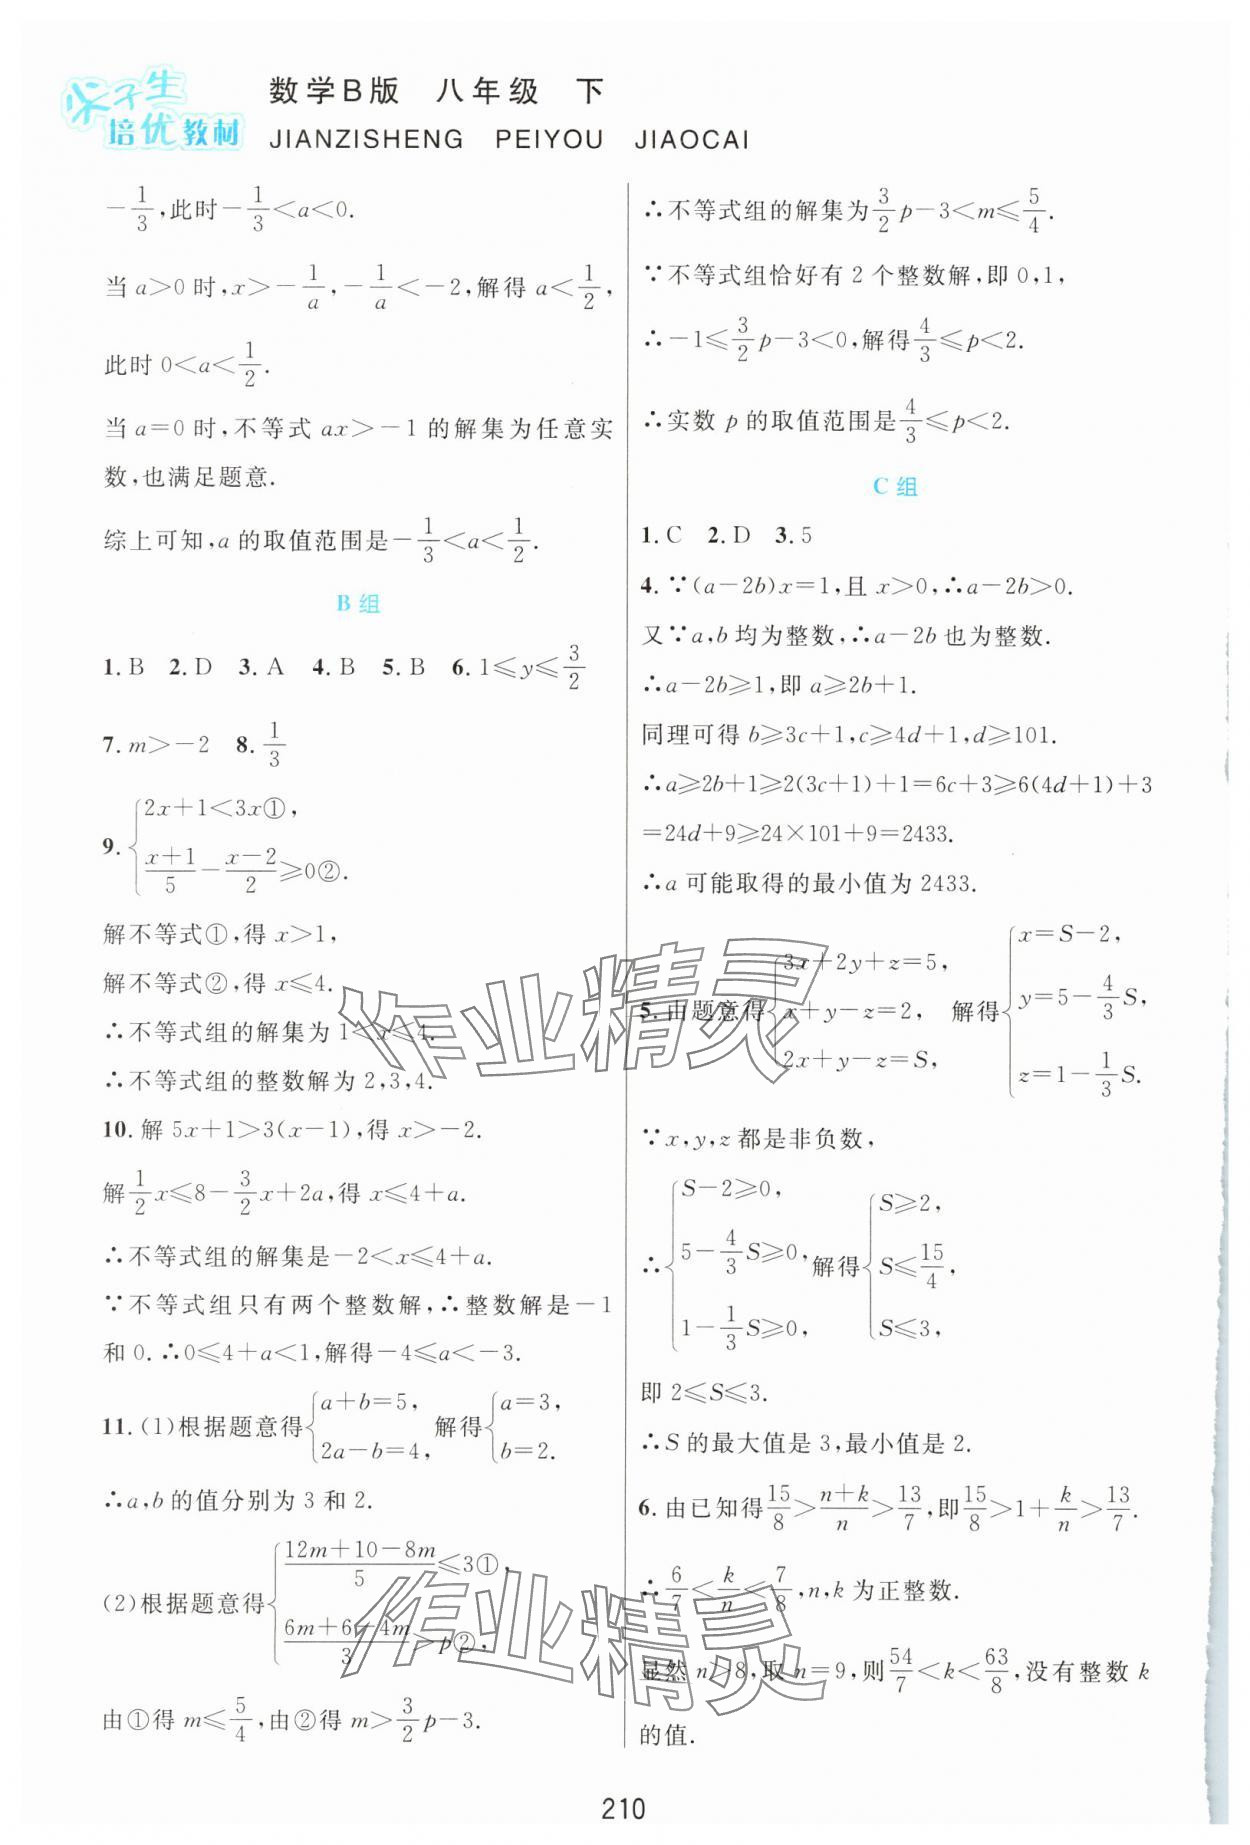 尖子生
培优教材
数学B版 八年级 下
JIANZISHENG PEIYOU JIAOCAI
-1/3,此时-1/3<a<0.
当a>0时,x>-1/a,-1/a<-2,解得a<1/2,
此时0<a<1/2.
当a=0时,不等式ax>-1的解集为任意实
数,也满足题意.
综上可知,a的取值范围是-1/3<a<1/2.
B组
1.B 2.D 3.A 4.B 5.B 6.1⩽y⩽3/2
7.m>-2 8.1/3
9.{2x+1<3x①,
(x+1)/5-(x-2)/2⩾0②.
解不等式①,得x>1,
解不等式②,得x⩽4.
∴不等式组的解集为1<x⩽4.
∴不等式组的整数解为2,3,4.
10.解5x+1>3(x-1),得x>-2.
解1/2x⩽8-3/2x+2a,得x⩽4+a.
∴不等式组的解集是-2<x⩽4+a.
∵不等式组只有两个整数解,∴整数解是-1
和0.∴0⩽4+a<1,解得-4⩽a<-3.
11.(1)根据题意得{a+b=5, 2a-b=4, 解得{a=3, b=2.
∴a,b的值分别为3和2.
(2)根据题意得{(12m+10-8m)/5⩽3①,
(6m+6-4m)/3>p②,
由①得m⩽5/4,由②得m>3/2p-3.
∴不等式组的解集为3/2p-3<m⩽5/4.
∵不等式组恰好有2个整数解,即0,1,
∴-1⩽3/2p-3<0,解得4/3⩽p<2.
∴实数p的取值范围是4/3⩽p<2.
C组
1.C 2.D 3.5
4.∵(a-2b)x=1,且x>0,∴a-2b>0.
又∵a,b均为整数,∴a-2b也为整数.
∴a-2b⩾1,即a⩾2b+1.
同理可得b⩾3c+1,c⩾4d+1,d⩾101.
∴a⩾2b+1⩾2(3c+1)+1=6c+3⩾6(4d+1)+3
=24d+9⩾24×101+9=2433.
∴a可能取得的最小值为2433.
5.由题意得{3x+2y+z=5, x+y-z=2, 2x+y-z=S, 解得{x=S-2, y=5-4/3S, z=1-1/3S.
∵x,y,z都是非负数,
∴{S-2⩾0, 5-4/3S⩾0, 1-1/3S⩾0, 解得{S⩾2, S⩽15/4, S⩽3,
即2⩽S⩽3.
∴S的最大值是3,最小值是2.
6.由已知得15/8>(n+k)/n>13/7,即15/8>1+k/n>13/7.
∴6/7<k/n<7/8,n,k为正整数.
显然n>8,取n=9,则54/7<k<63/8,没有整数k
的值.
作业精灵
作业精灵
210